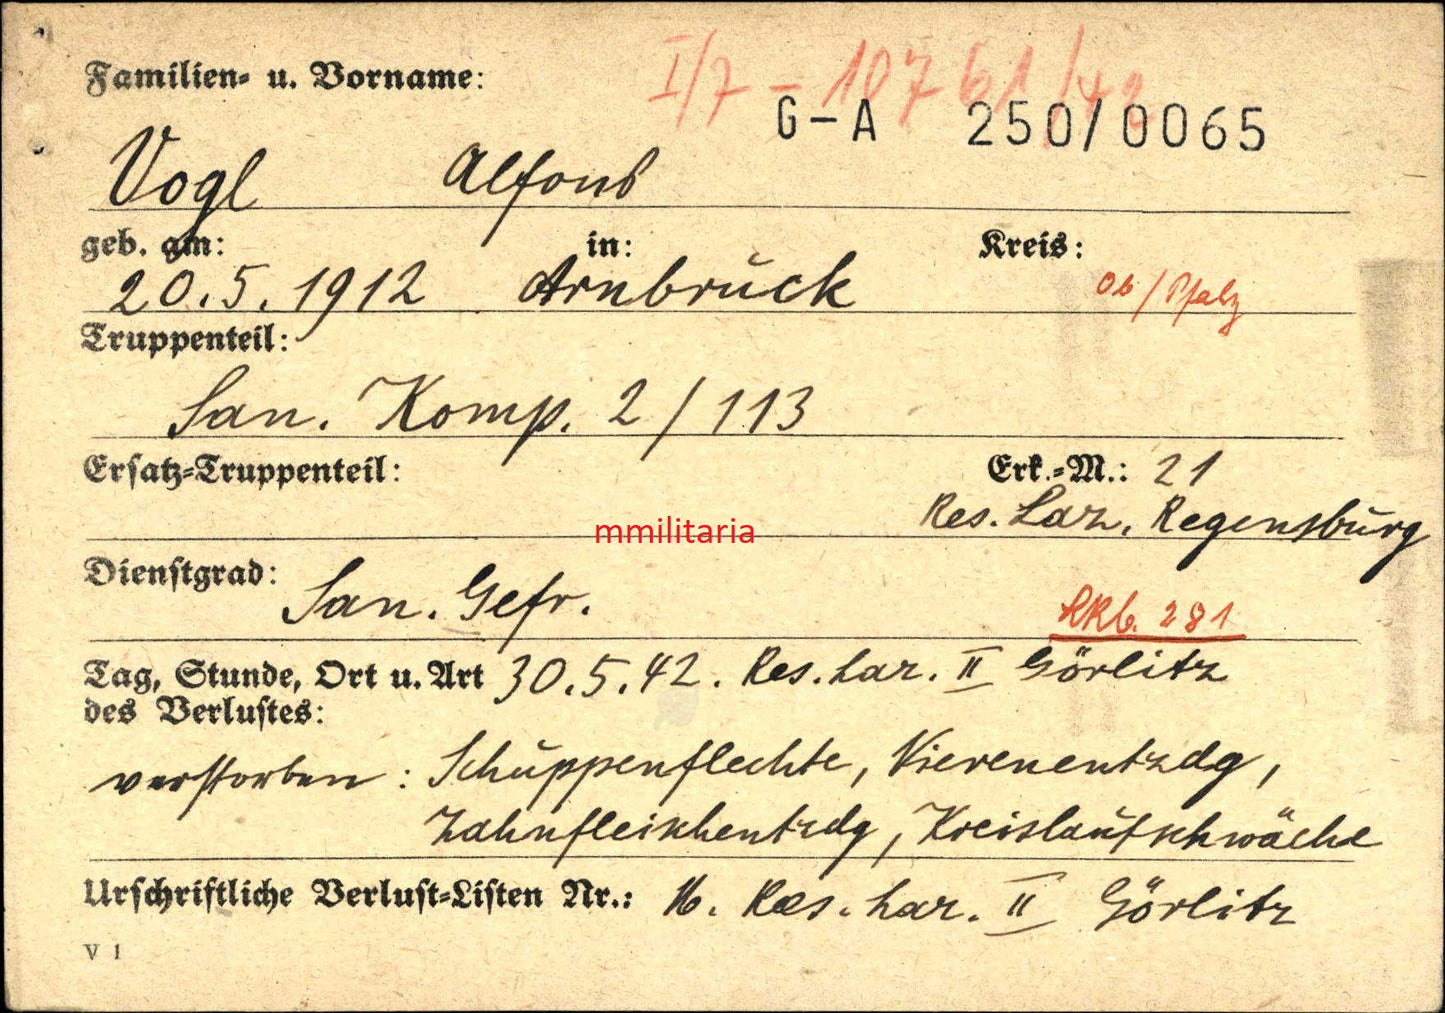 Familien- u. Vorname:
I/7 - 10761/42
G-A 250/0065
Vogl Alfons
geb. am: in: Kreis:
20.5.1912 Arnbrück Ob/Pfalz
Truppenteil:
San. Komp. 2/113
Ersatz-Truppenteil: Erk.-M.: 21
Res. Laz. Regensburg
mmilitaria
Dienstgrad:
San. Gefr.
281
Tag, Stunde, Ort u. Art 30.5.42. Res. Laz. II Görlitz
des Verlustes:
verstorben: Schuppenflechte, Nierenentzdg,
Zahnfleischentzdg, Kreislaufschwäche
Urschriftliche Verlust-Listen Nr.: 16. Res. Laz. II Görlitz
V 1